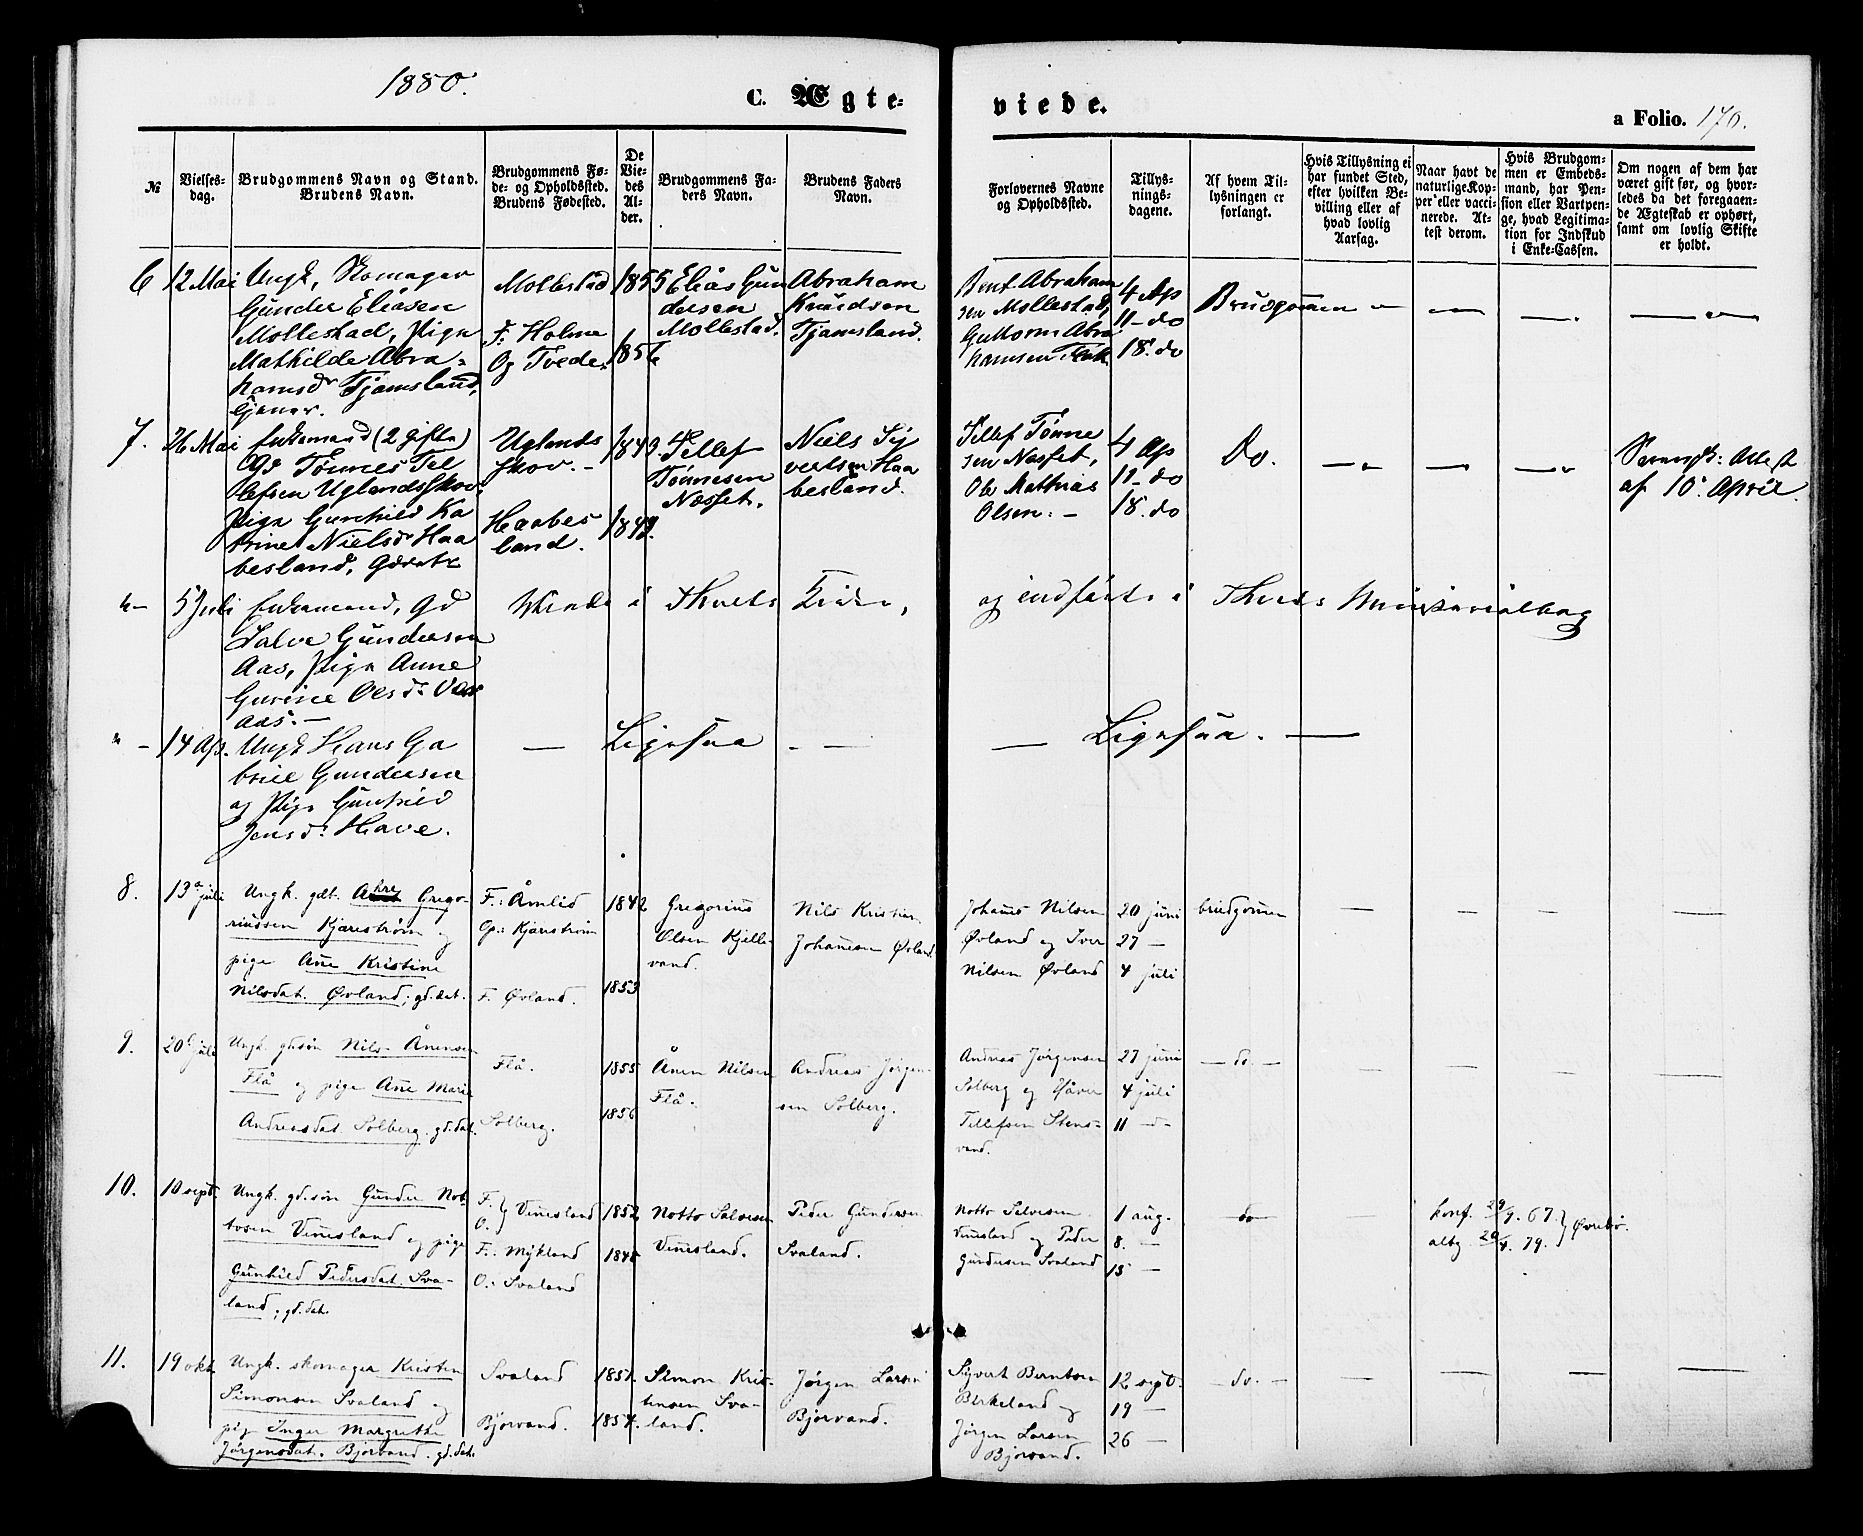 1880.
C. Ægte-
viede.
a Folio. 170.
№
Vielses-
dag.
Brudgommens Navn og Stand.
Brudens Navn.
Brudgommens Fø-
de- og Opholdssted.
Brudens Fødested.
De
Vie-
des
Al-
der.
Brudgommens Fa-
ders Navn.
Brudens Faders
Navn.
Forlovernes Navne
og Opholdssted.
Tillys-
nings-
dagene.
Af hvem Til-
lysningen er
forlangt.
Hvis Tillysning ei
har fundet Sted,
efter hvilken Be-
villing eller af
hvad lovlig
Aarsag.
Naar havt de
naturlige Kop-
per eller vacci-
nerede. At-
test derom.
Hvis Brudgom-
men er Embeds-
mand, har Pen-
sion eller Vartpen-
ge, hvad Legitima-
tion for Indskud
i Enke-Cassen.
Om nogen af dem har
været gift før, og hvor-
ledes da det foregaaen-
de Ægteskab er ophørt,
samt om lovlig Skifte
er holdt.
6
12 Mai
Ungk, Skomager
Gunder Eliasen
Mollestad, Pige
Mathilde Abra-
hamsdr Tjamsland,
Mollestad
F: Holme
Og Tvede.
1855
1856
Elias Gun
dersen
Mollestad.
Abraham
Knudsen
Tjamsland.
Bent Abraham
sen Mollestad,
Guttorm Abra
hamsen
4 Ap
11 - do
18. do
Brudgommen
7.
26 Mai
Enkemand (2 Gifte)
Gd Tønnes Tel
lefsen Uglandsskov,
Pige Gunhild Ka
trine Nielsdr Haa
besland,
Uglands
skov. -
Haabes
land.
1843.
1849.
Tellef
Tønnesen
Næsset.
Niels Sy
vertsen Haa
besland.
Tellef Tønne
sen Næsset,
Ole Mathias
Olsen. -
4 Ap
11 - do
18. do
Do.
Attest
af 10 April.
" -
5 Juli
Enkemand, Gd
Salve Gundersen
Aas, Pige Anne
Gurine Olsdr
aas. -
Viende i Thvets Kirke,
og indført i Thveds Ministerialbog
" -
14 Ap.
Ungk Hans Ga
briel Gundersen
og Pige Gunhild
Jensdr. Have.
— Ligesaa - —
— Ligesaa. —
8.
13 juli
Ungk. gdt. Ahre Grego-
riussen Kjærestrøm og
pige Ane Kristine
Nilsdat. Øvland, gd.dat.
F.: Åmlid
Op: Kjærestrøm
F. Øvland.
1842
1853
Gregorius
Olsen Kjelle-
vand.
Nils Kristian
Johanesen Øvland
Johanes Nilsen
Øvland og Iver
Nilsen Øvland
20 juni
27 —
4 juli
brudgommen
9.
20 juli
Ungk. gdsøn Nils Ånensen
Flå og pige Ane Marie
Andreasdat. Solberg. gd.dat.
Flå.
Solberg.
1855
1856
Ånen Nilsen
Flå.
Andreas Jørgen-
sen Solberg.
Andreas Jørgensen
Solberg og Håver
Tellefsen Stens-
vand.
27 juni
4 juli
11 -d-
— do. —
10.
10 sept.
Ungk. gd.søn Gunder Not-
tosen Vennesland og pige
Gunhild Pedersdat. Sva-
land, gd.dat.
F.
O. } Vennesland
F.: Mykland
O.: Svaland
1852
1848
Notto Salvesen
Vennesland.
Peder Gundersen
Svaland.
Notto Salvesen
Vennesland og Peder
Gundersen Svaland
1 aug.
8. —
15 —
do
konf. 29/9. 67.
attg. 20/4. 79. } Øvrebø.
11.
19 okt.
Ungk. skomager Kristen
Simonsen Svaland og
pige Inger Margrethe
Jørgensdat. Bjorvand. gd.dat.
Svaland
Bjorvand.
1851.
1854.
Simon Kris-
tensen Sva-
land.
Jørgen Larsen
Bjorvand.
Sigvert Berntsen
Birkeland og
Jørgen Larsen
Bjorvand.
12 sept.
19 —
26 —
— do. —